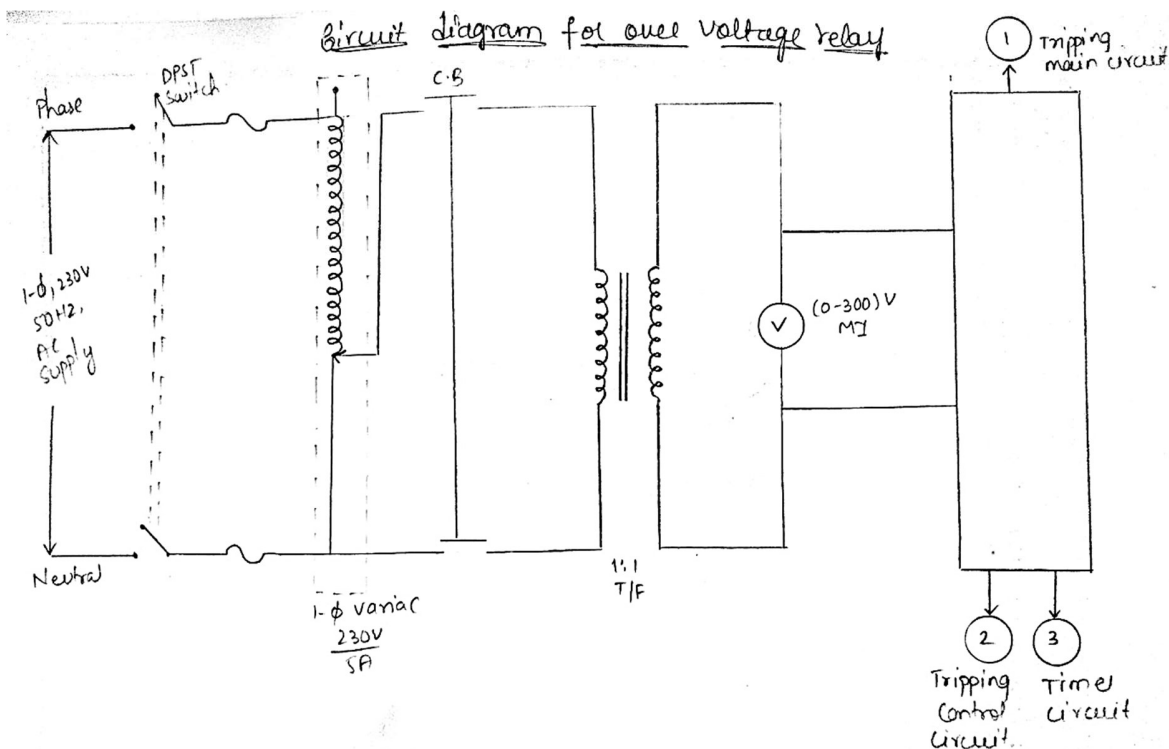 Circuit diagram for over Voltage relay
1
Tripping
main circuit
DPST
Switch
C.B
Phase
1-ϕ, 230V
50HZ,
AC
Supply
(0-300)V
MI
V
Neutral
1:1
T/F
1-ϕ Variac
230V
5A
2
3
Tripping
Control
Circuit.
Timer
Circuit